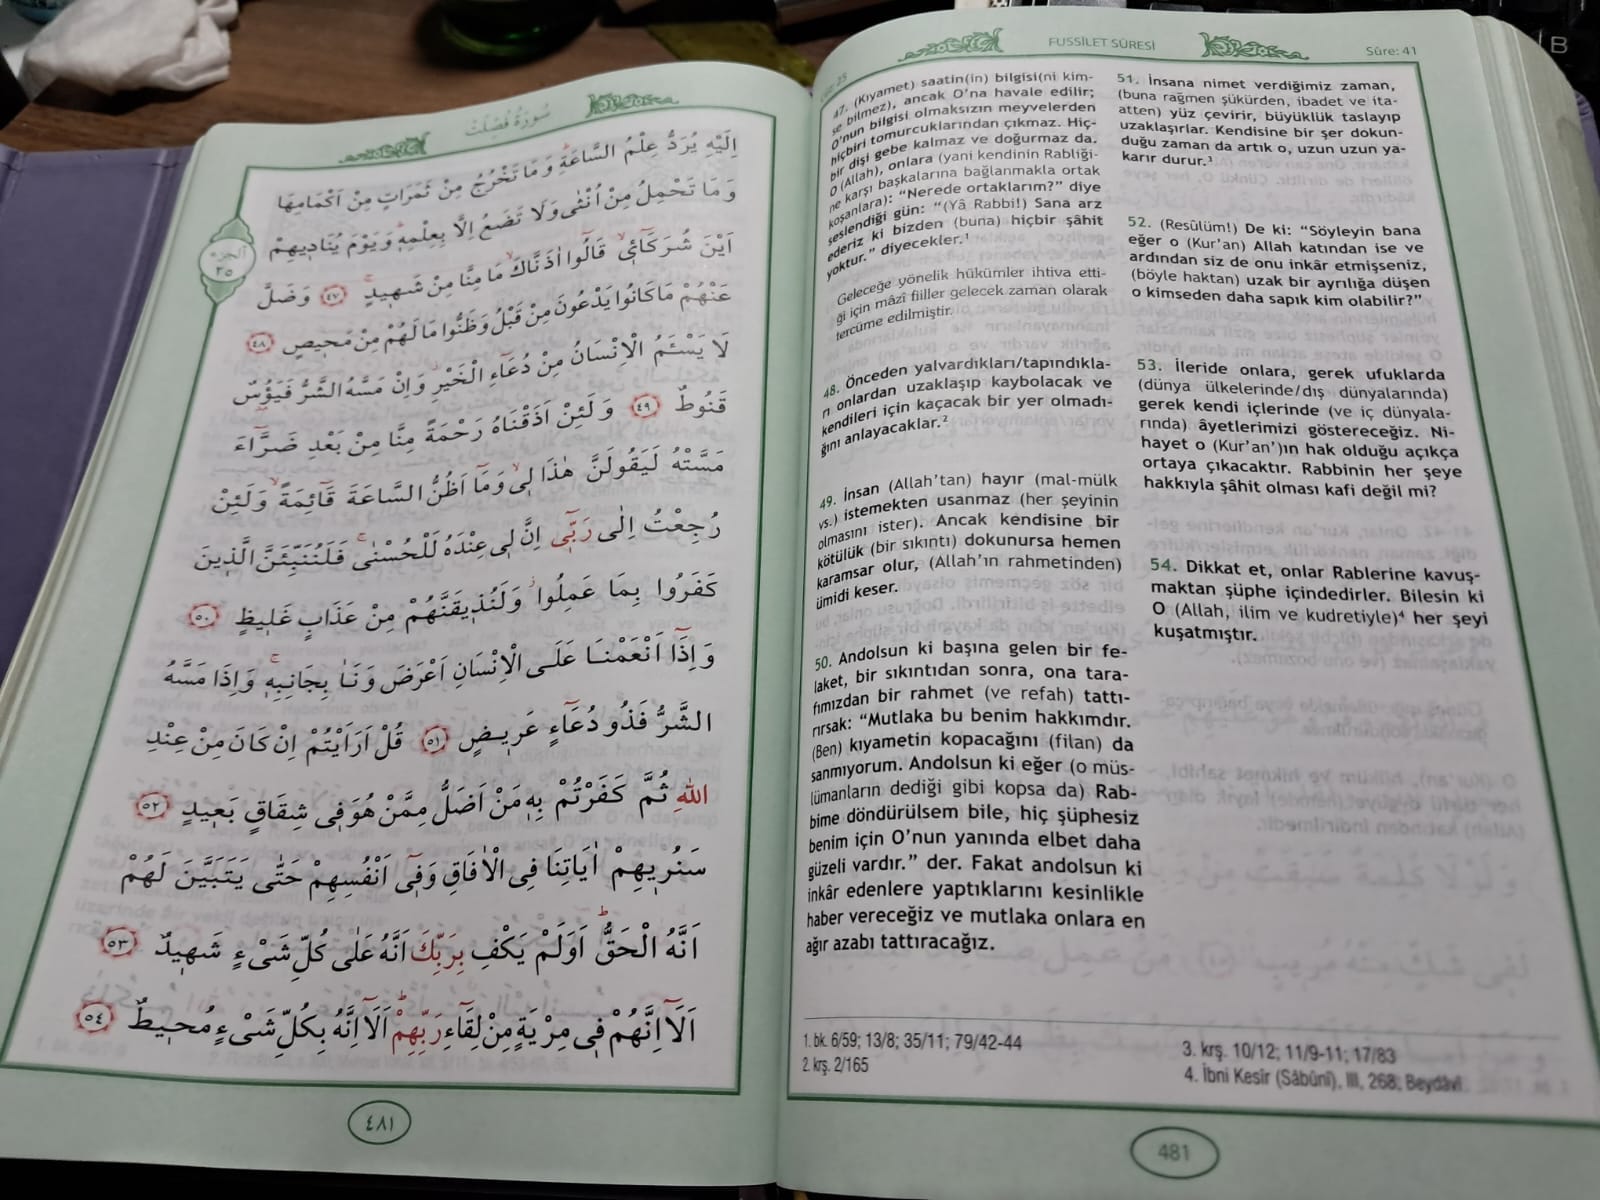 سُورَةُ فُصِّلَتْ
اِلَيْهِ يُرَدُّ عِلْمُ السَّاعَةِ وَمَا تَخْرُجُ مِنْ ثَمَرَاتٍ مِنْ اَكْمَامِهَا
وَمَا تَحْمِلُ مِنْ اُنْثٰى وَلَا تَضَعُ اِلَّا بِعِلْمِهٖ وَيَوْمَ يُنَادٖيهِمْ
اَيْنَ شُرَكَٓائٖي قَالُٓوا اٰذَنَّاكَ مَا مِنَّا مِنْ شَهٖيدٍ ٤٧ وَضَلَّ
عَنْهُمْ مَا كَانُوا يَدْعُونَ مِنْ قَبْلُ وَظَنُّوا مَا لَهُمْ مِنْ مَحٖيصٍ ٤٨
لَا يَسْـَٔمُ الْاِنْسَانُ مِنْ دُعَٓاءِ الْخَيْرِ وَاِنْ مَسَّهُ الشَّرُّ فَيَؤُ۫سٌ
قَنُوطٌ ٤٩ وَلَئِنْ اَذَقْنَاهُ رَحْمَةً مِنَّا مِنْ بَعْدِ ضَرَّٓاءَ
مَسَّتْهُ لَيَقُولَنَّ هٰذَا لٖي وَمَٓا اَظُنُّ السَّاعَةَ قَٓائِمَةً وَلَئِنْ
رُجِعْتُ اِلٰى رَبّٖٓي اِنَّ لٖي عِنْدَهُ لَلْحُسْنٰى فَلَنُنَبِّئَنَّ الَّذٖينَ
كَفَرُوا بِمَا عَمِلُوا وَلَنُذٖيقَنَّهُمْ مِنْ عَذَابٍ غَلٖيظٍ ٥٠
وَاِذَٓا اَنْعَمْنَا عَلَى الْاِنْسَانِ اَعْرَضَ وَنَاٰ بِجَانِبِهٖ وَاِذَا مَسَّهُ
الشَّرُّ فَذُو دُعَٓاءٍ عَرٖيضٍ ٥١ قُلْ اَرَاَيْتُمْ اِنْ كَانَ مِنْ عِنْدِ
اللّٰهِ ثُمَّ كَفَرْتُمْ بِهٖ مَنْ اَضَلُّ مِمَّنْ هُوَ فٖي شِقَاقٍ بَعٖيدٍ ٥٢
سَنُرٖيهِمْ اٰيَاتِنَا فِي الْاٰفَاقِ وَفٖٓي اَنْفُسِهِمْ حَتّٰى يَتَبَيَّنَ لَهُمْ
اَنَّهُ الْحَقُّ اَوَلَمْ يَكْفِ بِرَبِّكَ اَنَّهُ عَلٰى كُلِّ شَيْءٍ شَهٖيدٌ ٥٣
اَلَٓا اِنَّهُمْ فٖي مِرْيَةٍ مِنْ لِقَٓاءِ رَبِّهِمْ اَلَٓا اِنَّهُ بِكُلِّ شَيْءٍ مُحٖيطٌ ٥٤
الجزء
٢٥
٤٨١
FUSSİLET SÛRESİ
Sûre: 41
47. (Kıyamet) saatin(in) bilgisi(ni kim-
se bilmez), ancak O'na havale edilir;
O'nun bilgisi olmaksızın meyvelerden
hiçbiri tomurcuklarından çıkmaz. Hiç-
bir dişi gebe kalmaz ve doğurmaz da.
O (Allah), onlara (yani kendinin Rabliği-
ne karşı başkalarına bağlanmakla ortak
koşanlara): “Nerede ortaklarım?” diye
seslendiği gün: “(Yâ Rabbi!) Sana arz
ederiz ki bizden (buna) hiçbir şâhit
yoktur.” diyecekler.¹
Geleceğe yönelik hükümler ihtiva etti-
ği için mâzî fiiller gelecek zaman olarak
tercüme edilmiştir.
48. Önceden yalvardıkları/tapındıkla-
rı onlardan uzaklaşıp kaybolacak ve
kendileri için kaçacak bir yer olmadı-
ğını anlayacaklar.²
49. İnsan (Allah'tan) hayır (mal-mülk
vs.) istemekten usanmaz (her şeyinin
olmasını ister). Ancak kendisine bir
kötülük (bir sıkıntı) dokunursa hemen
karamsar olur, (Allah'ın rahmetinden)
ümidi keser.
50. Andolsun ki başına gelen bir fe-
laket, bir sıkıntıdan sonra, ona tara-
fımızdan bir rahmet (ve refah) tattı-
rırsak: “Mutlaka bu benim hakkımdır.
(Ben) kıyametin kopacağını (filan) da
sanmıyorum. Andolsun ki eğer (o müs-
lümanların dediği gibi kopsa da) Rab-
bime döndürülsem bile, hiç şüphesiz
benim için O'nun yanında elbet daha
güzeli vardır.” der. Fakat andolsun ki
inkâr edenlere yaptıklarını kesinlikle
haber vereceğiz ve mutlaka onlara en
ağır azabı tattıracağız.
51. İnsana nimet verdiğimiz zaman,
(buna rağmen şükürden, ibadet ve ita-
atten) yüz çevirir, büyüklük taslayıp
uzaklaşırlar. Kendisine bir şer dokun-
duğu zaman da artık o, uzun uzun ya-
karır durur.³
52. (Resûlüm!) De ki: “Söyleyin bana
eğer o (Kur'an) Allah katından ise ve
ardından siz de onu inkâr etmişseniz,
(böyle haktan) uzak bir ayrılığa düşen
o kimseden daha sapık kim olabilir?”
53. İleride onlara, gerek ufuklarda
(dünya ülkelerinde/dış dünyalarında)
gerek kendi içlerinde (ve iç dünyala-
rında) âyetlerimizi göstereceğiz. Ni-
hayet o (Kur'an')ın hak olduğu açıkça
ortaya çıkacaktır. Rabbinin her şeye
hakkıyla şâhit olması kafi değil mi?
54. Dikkat et, onlar Rablerine kavuş-
maktan şüphe içindedirler. Bilesin ki
O (Allah, ilim ve kudretiyle)⁴ her şeyi
kuşatmıştır.
1. bk. 6/59; 13/8; 35/11; 79/42-44
2. krş. 2/165
3. krş. 10/12; 11/9-11; 17/83
4. İbni Kesîr (Sâbûnî), III, 268; Beydâvî
481
B